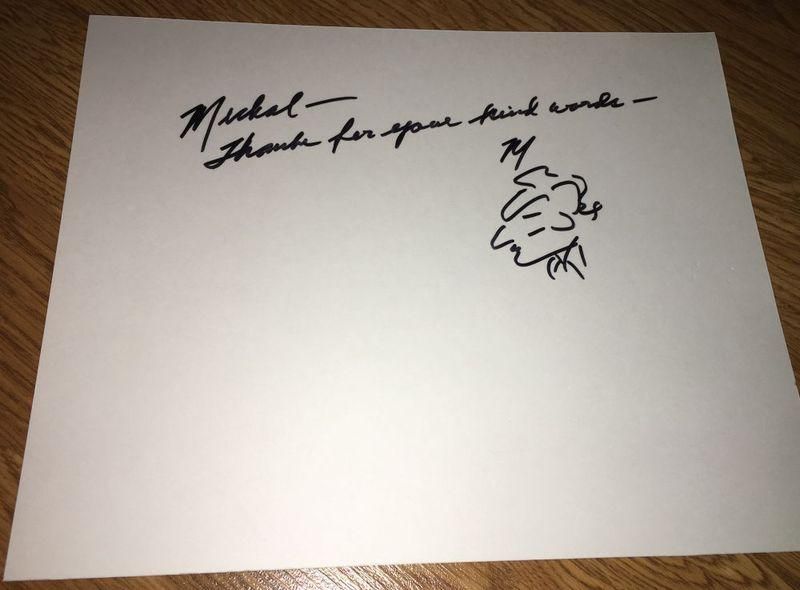 Mickal —
Thanks for your kind words —
M